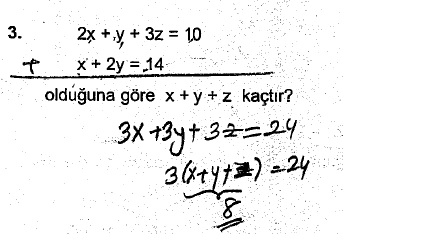 3. 2x + y + 3z = 10
+ x + 2y = 14
olduğuna göre x + y + z kaçtır?
3x+3y+3z=24
3(x+y+z)=24
8